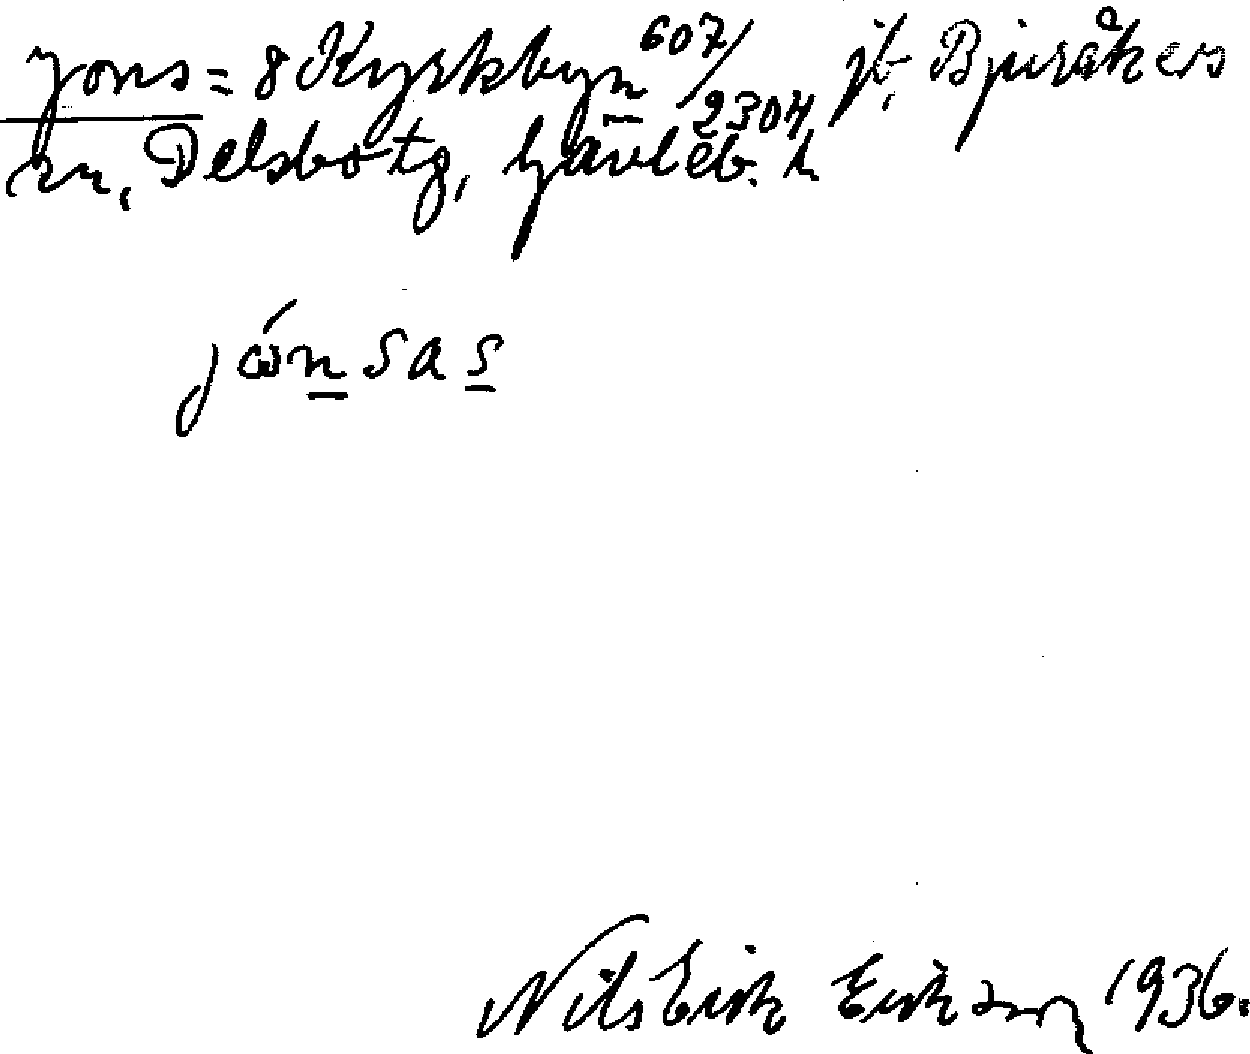 Jons = 8 Kyrkbyn 607/2304 jb, Bjuråkers
sn, Delsbo tg, Gävleb. l
jώnsas
Nils Erik Eriksson 1936.